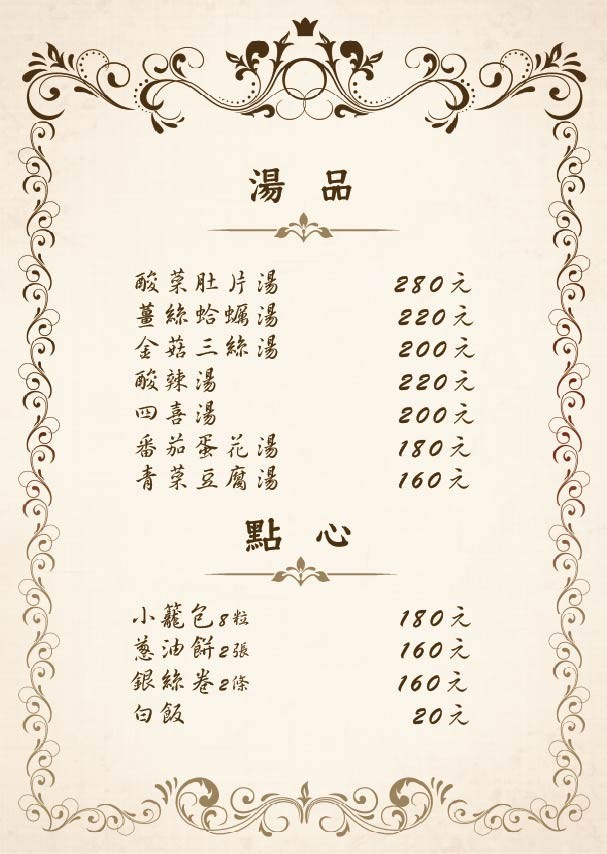 湯品
酸菜肚片湯 280元
薑絲蛤蠣湯 220元
金菇三絲湯 200元
酸辣湯 220元
四喜湯 200元
番茄蛋花湯 180元
青菜豆腐湯 160元
點心
小籠包8粒 180元
蔥油餅2張 160元
銀絲卷2條 160元
白飯 20元